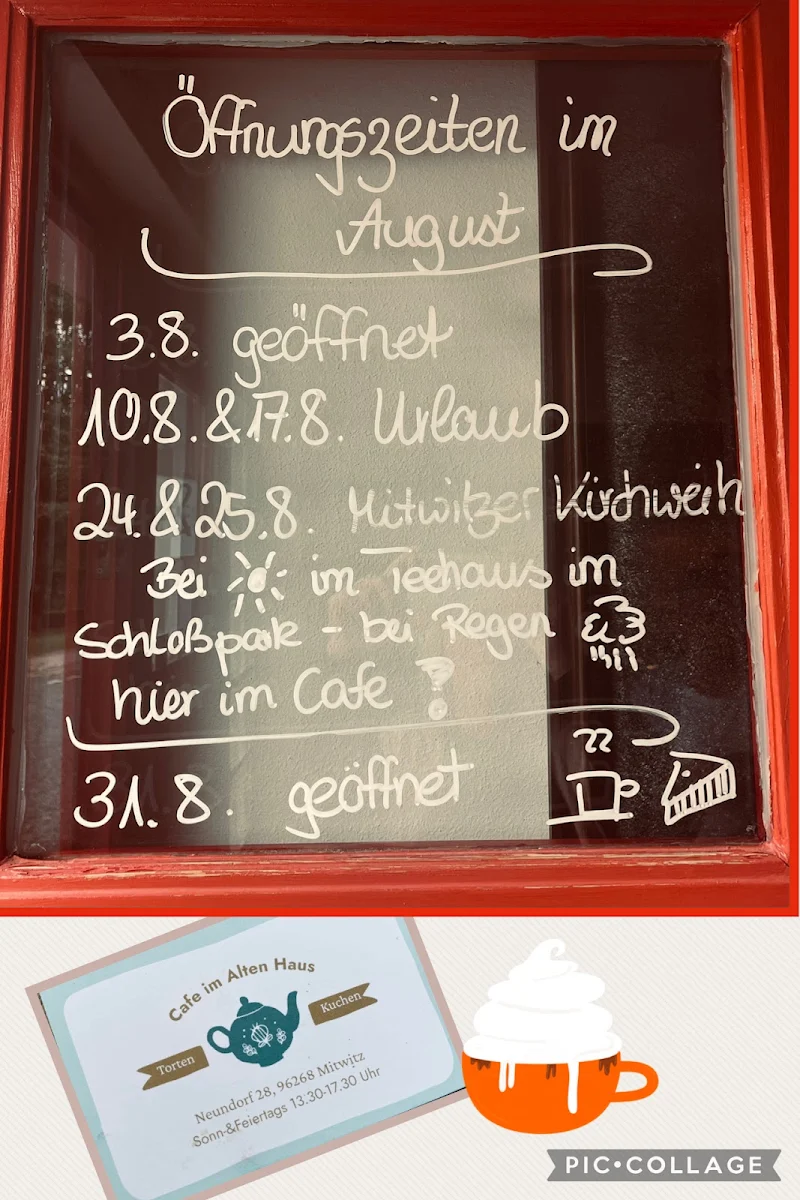 Öffnungszeiten im
August
3.8. geöffnet
10.8. & 17.8. Urlaub
24. & 25.8. Mitwitzer Kirchweih
Bei im Teehaus im
Schloßpark - bei Regen
hier im Cafe !
31.8. geöffnet
Cafe im Alten Haus
Torten
Kuchen
Neundorf 28, 96268 Mitwitz
Sonn-&Feiertags 13.30-17.30 Uhr
PIC•COLLAGE